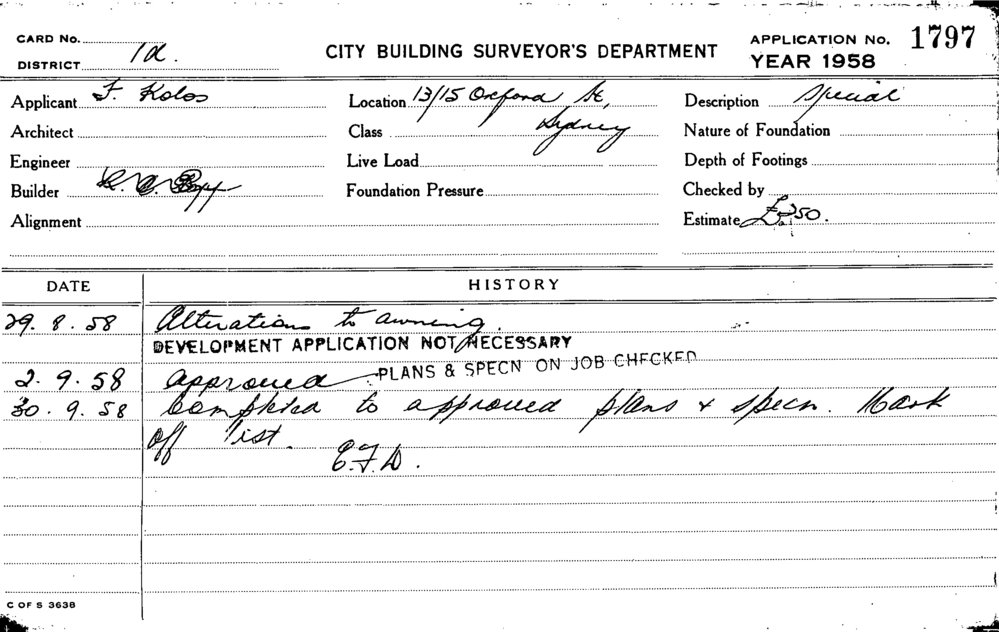 CARD No.
DISTRICT 1d.
CITY BUILDING SURVEYOR'S DEPARTMENT
APPLICATION No. 1797
YEAR 1958
Applicant F. Kolos
Location 13/15 Oxford St,
Description Special
Architect
Class Sydney
Nature of Foundation
Engineer
Live Load
Depth of Footings
Builder
Foundation Pressure
Checked by
Alignment
Estimate £250.
DATE HISTORY
29. 8. 58 Alterations to awning.
DEVELOPMENT APPLICATION NOT NECESSARY
2. 9. 58 approved PLANS & SPECN ON JOB CHECKED
30. 9. 58 Completed to approved plans & specn. Mark
off list.
E.F.D.
C OF S 3638